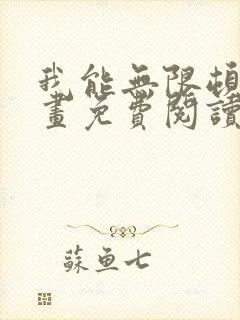 我能無限頓
畫免費閱讀
蘇魚七